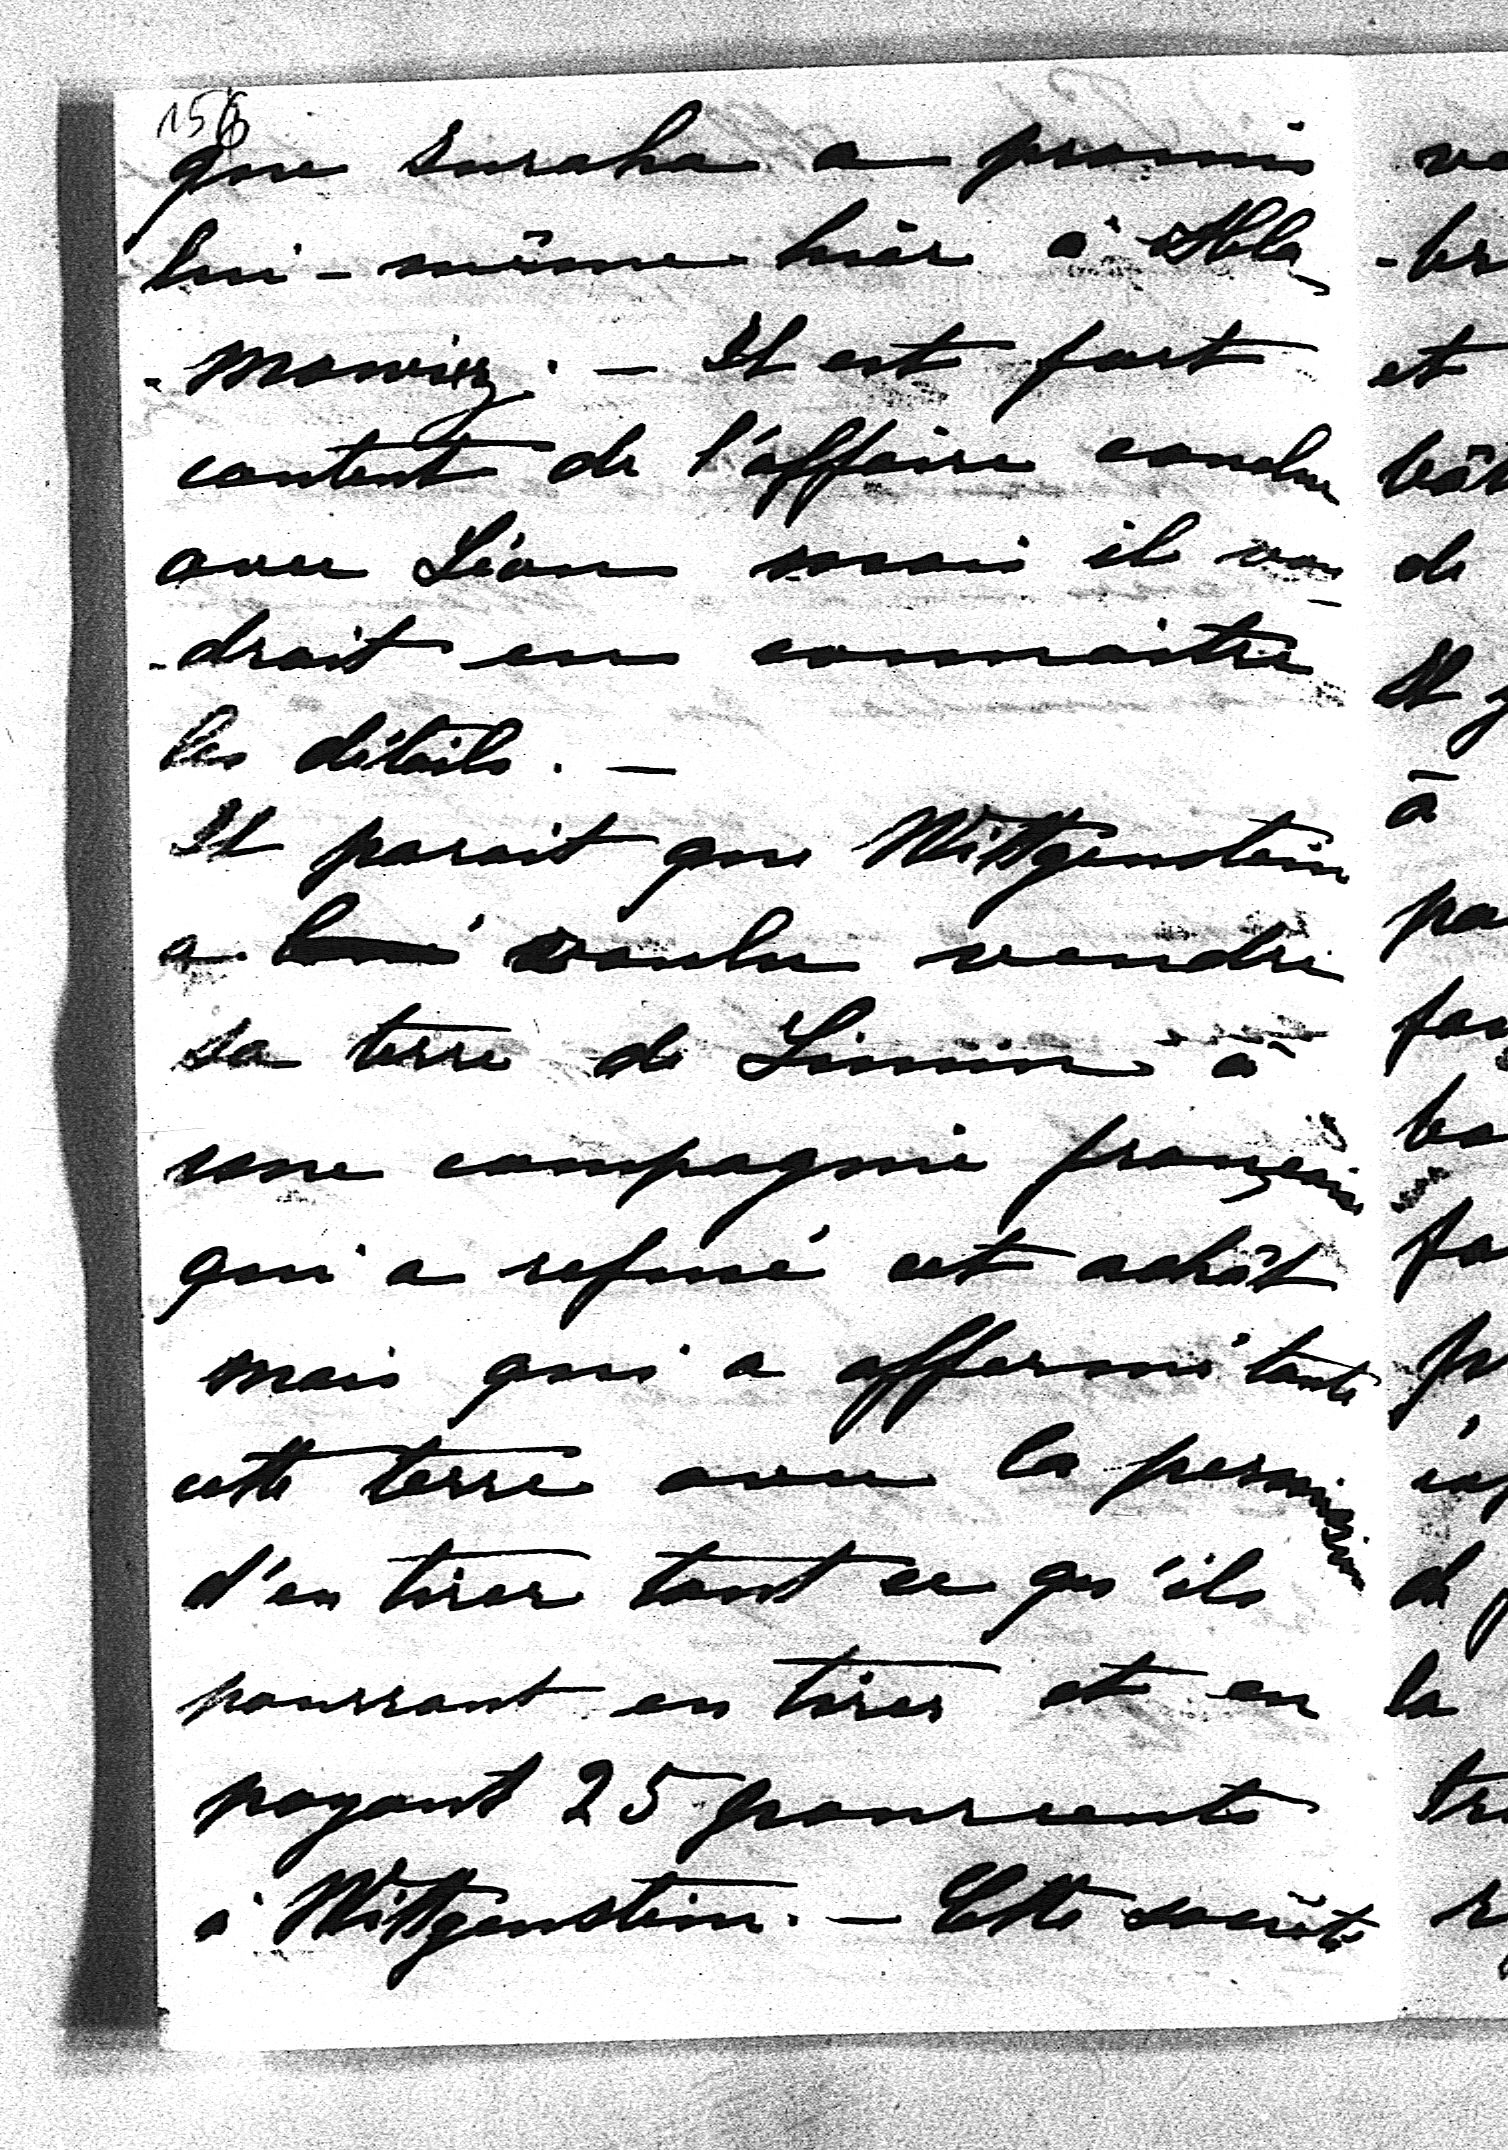 156
que Suraha a promis
lui-même hièr à Abla
-mowiez. — Il est fort
content de l'affaire conclue
avec Léon mais il vou
-drait en connaitre
les détails. —
Il parait que Wittgenstein
a voulu vendre
sa terre de à
une compagnie française
qui a refusé cet achât
mais qui a affermé toute
cette terre avec la permission
d'en tirer tout ce qu'ils
pourront en tirer et en
payant 25 pourcents
à Wittgenstein. — Cette société